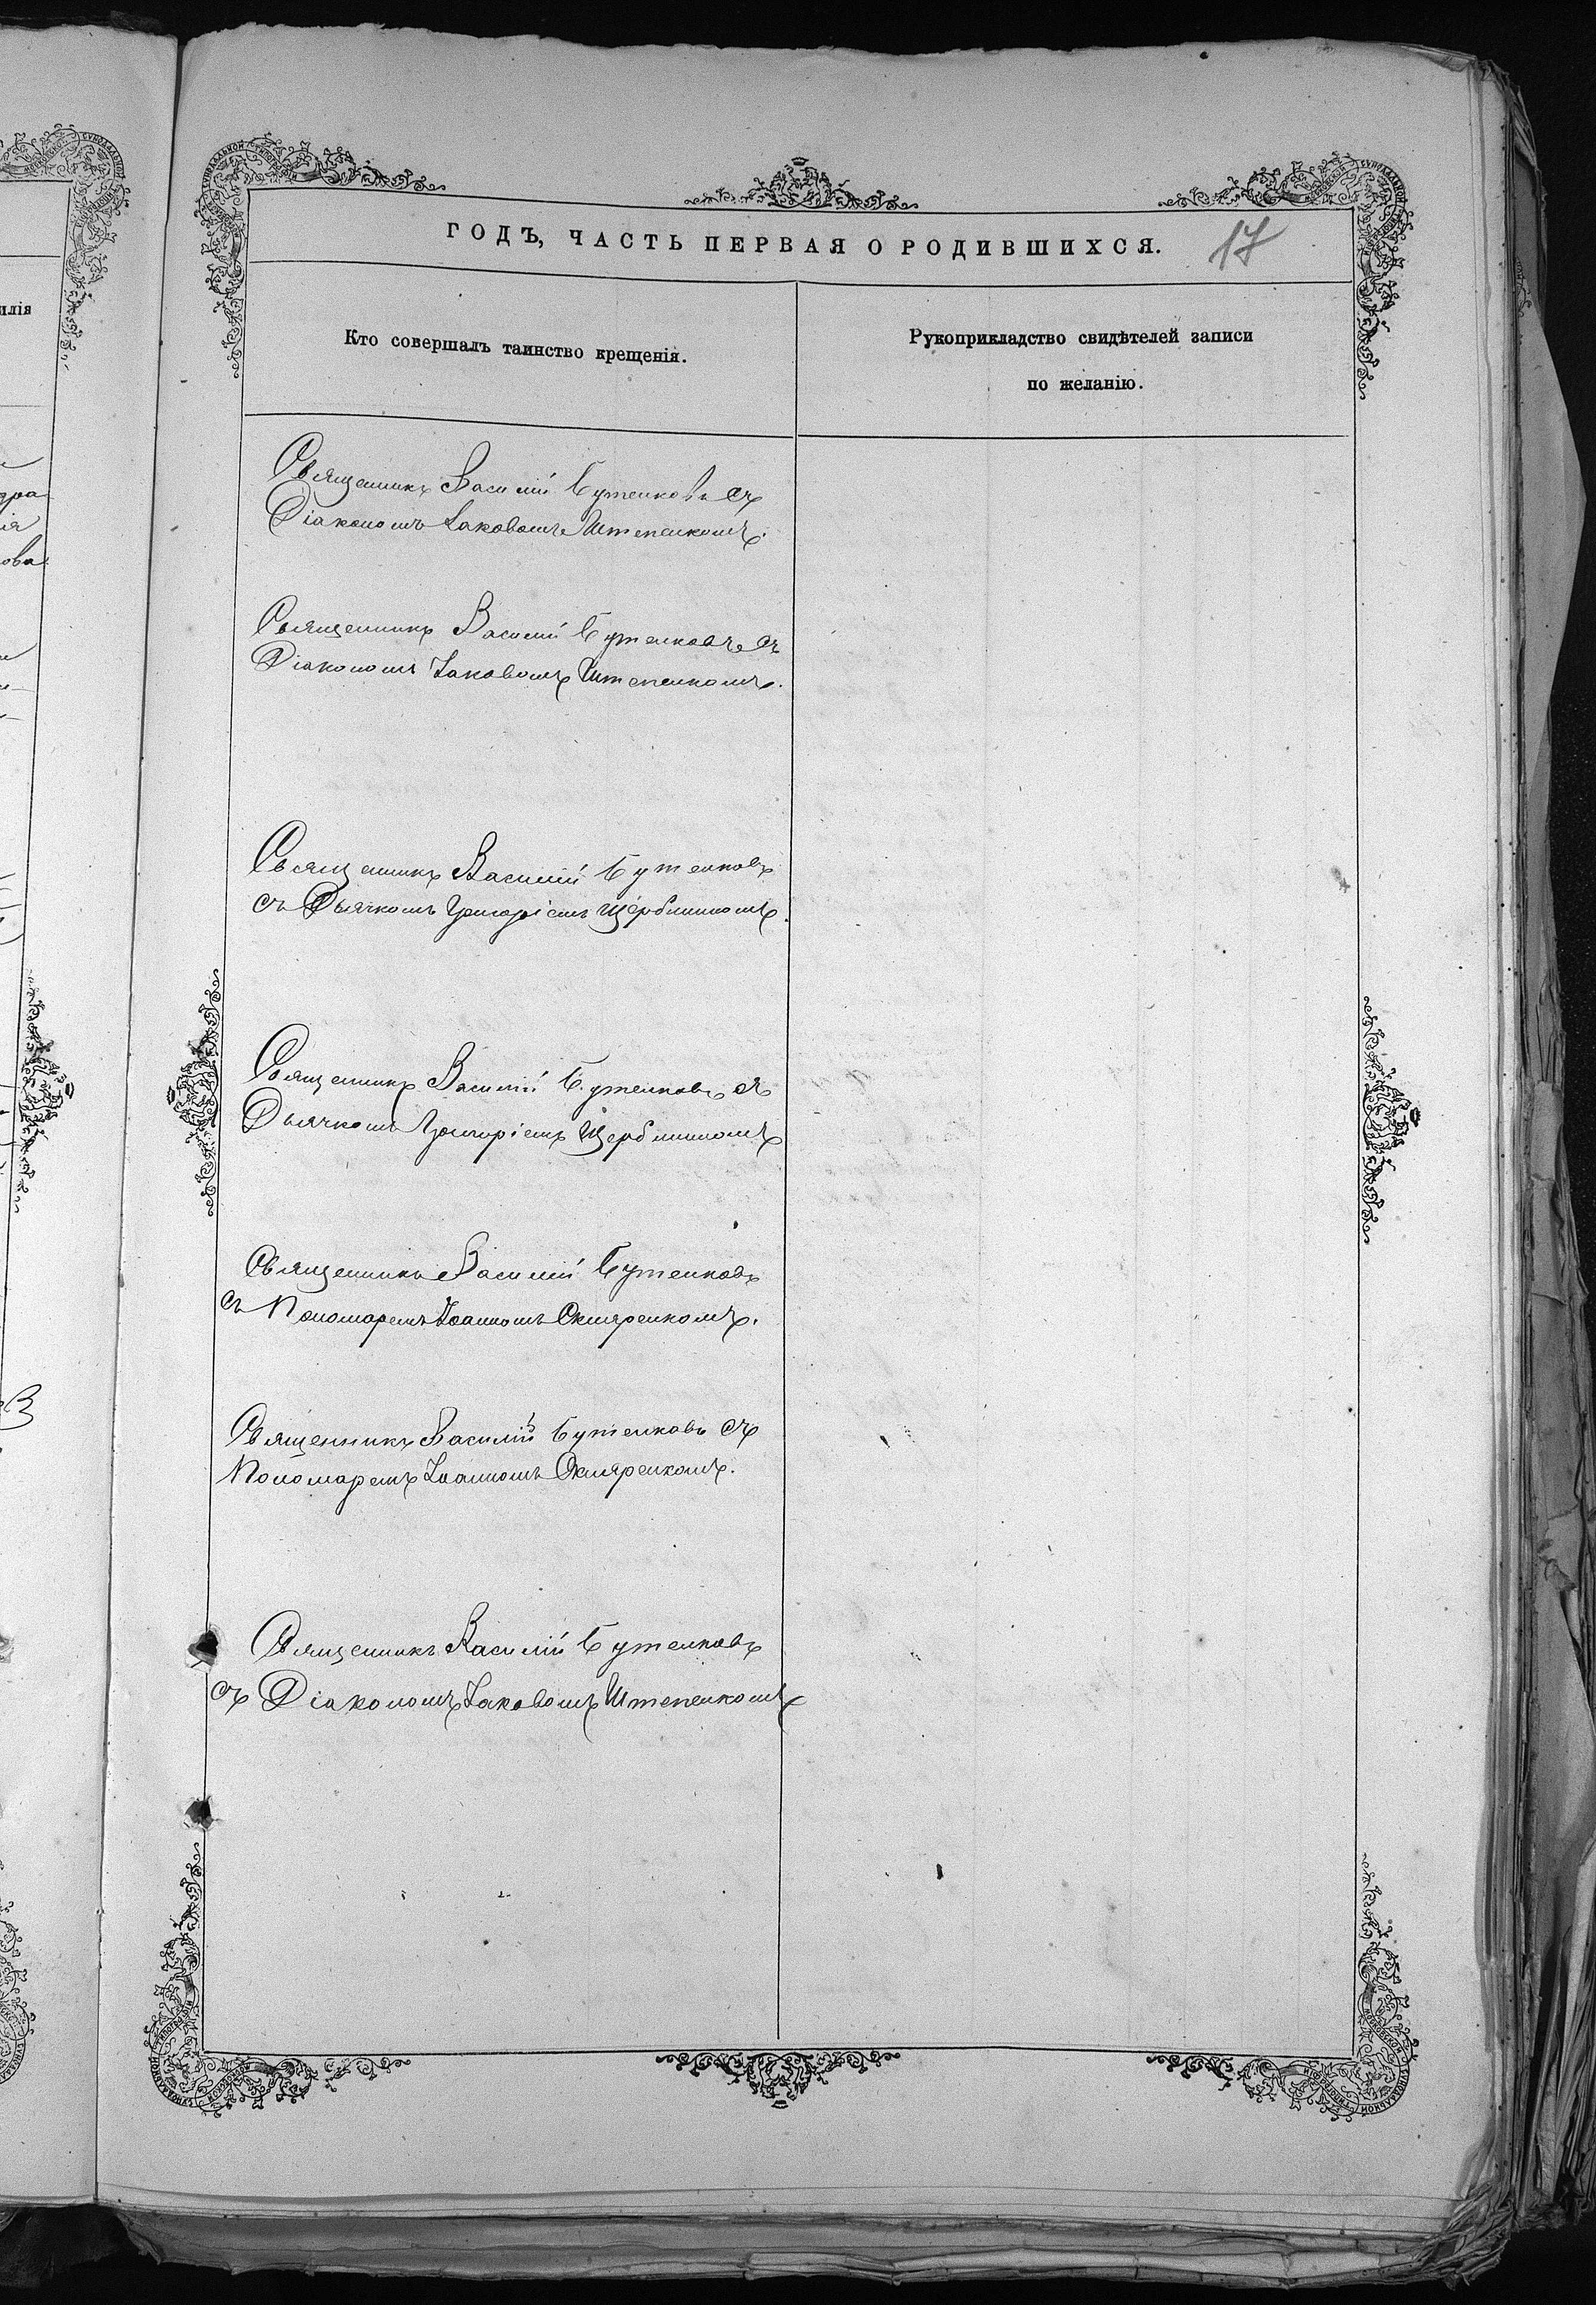 ГОДЪ, ЧАСТЬ ПЕРВАЯ О РОДИВШИХСЯ. 17
Кто совершалъ таинство крещенія.
Рукоприкладство свидѣтелей записи
по желанію.
Священникъ Василій Бутенковъ съ
Діакономъ Іаковомъ Штепенкомъ.
Священникъ Василій Бутенковъ съ
Діакономъ Іаковомъ Штепенкомъ.
Священникъ Василій Бутенковъ
съ Дьячкомъ Григоріемъ Щербининомъ.
Священникъ Василій Бутенковъ съ
Дьячкомъ Григоріемъ Щербининомъ
Священникъ Василій Бутенковъ
съ Пономаремъ Іоанномъ Скляренкомъ.
Священникъ Василій Бутенковъ съ
Пономаремъ Іоанномъ Скляренкомъ.
Священникъ Василій Бутенковъ
съ Діакономъ Іаковомъ Штепенкомъ
илія
ова